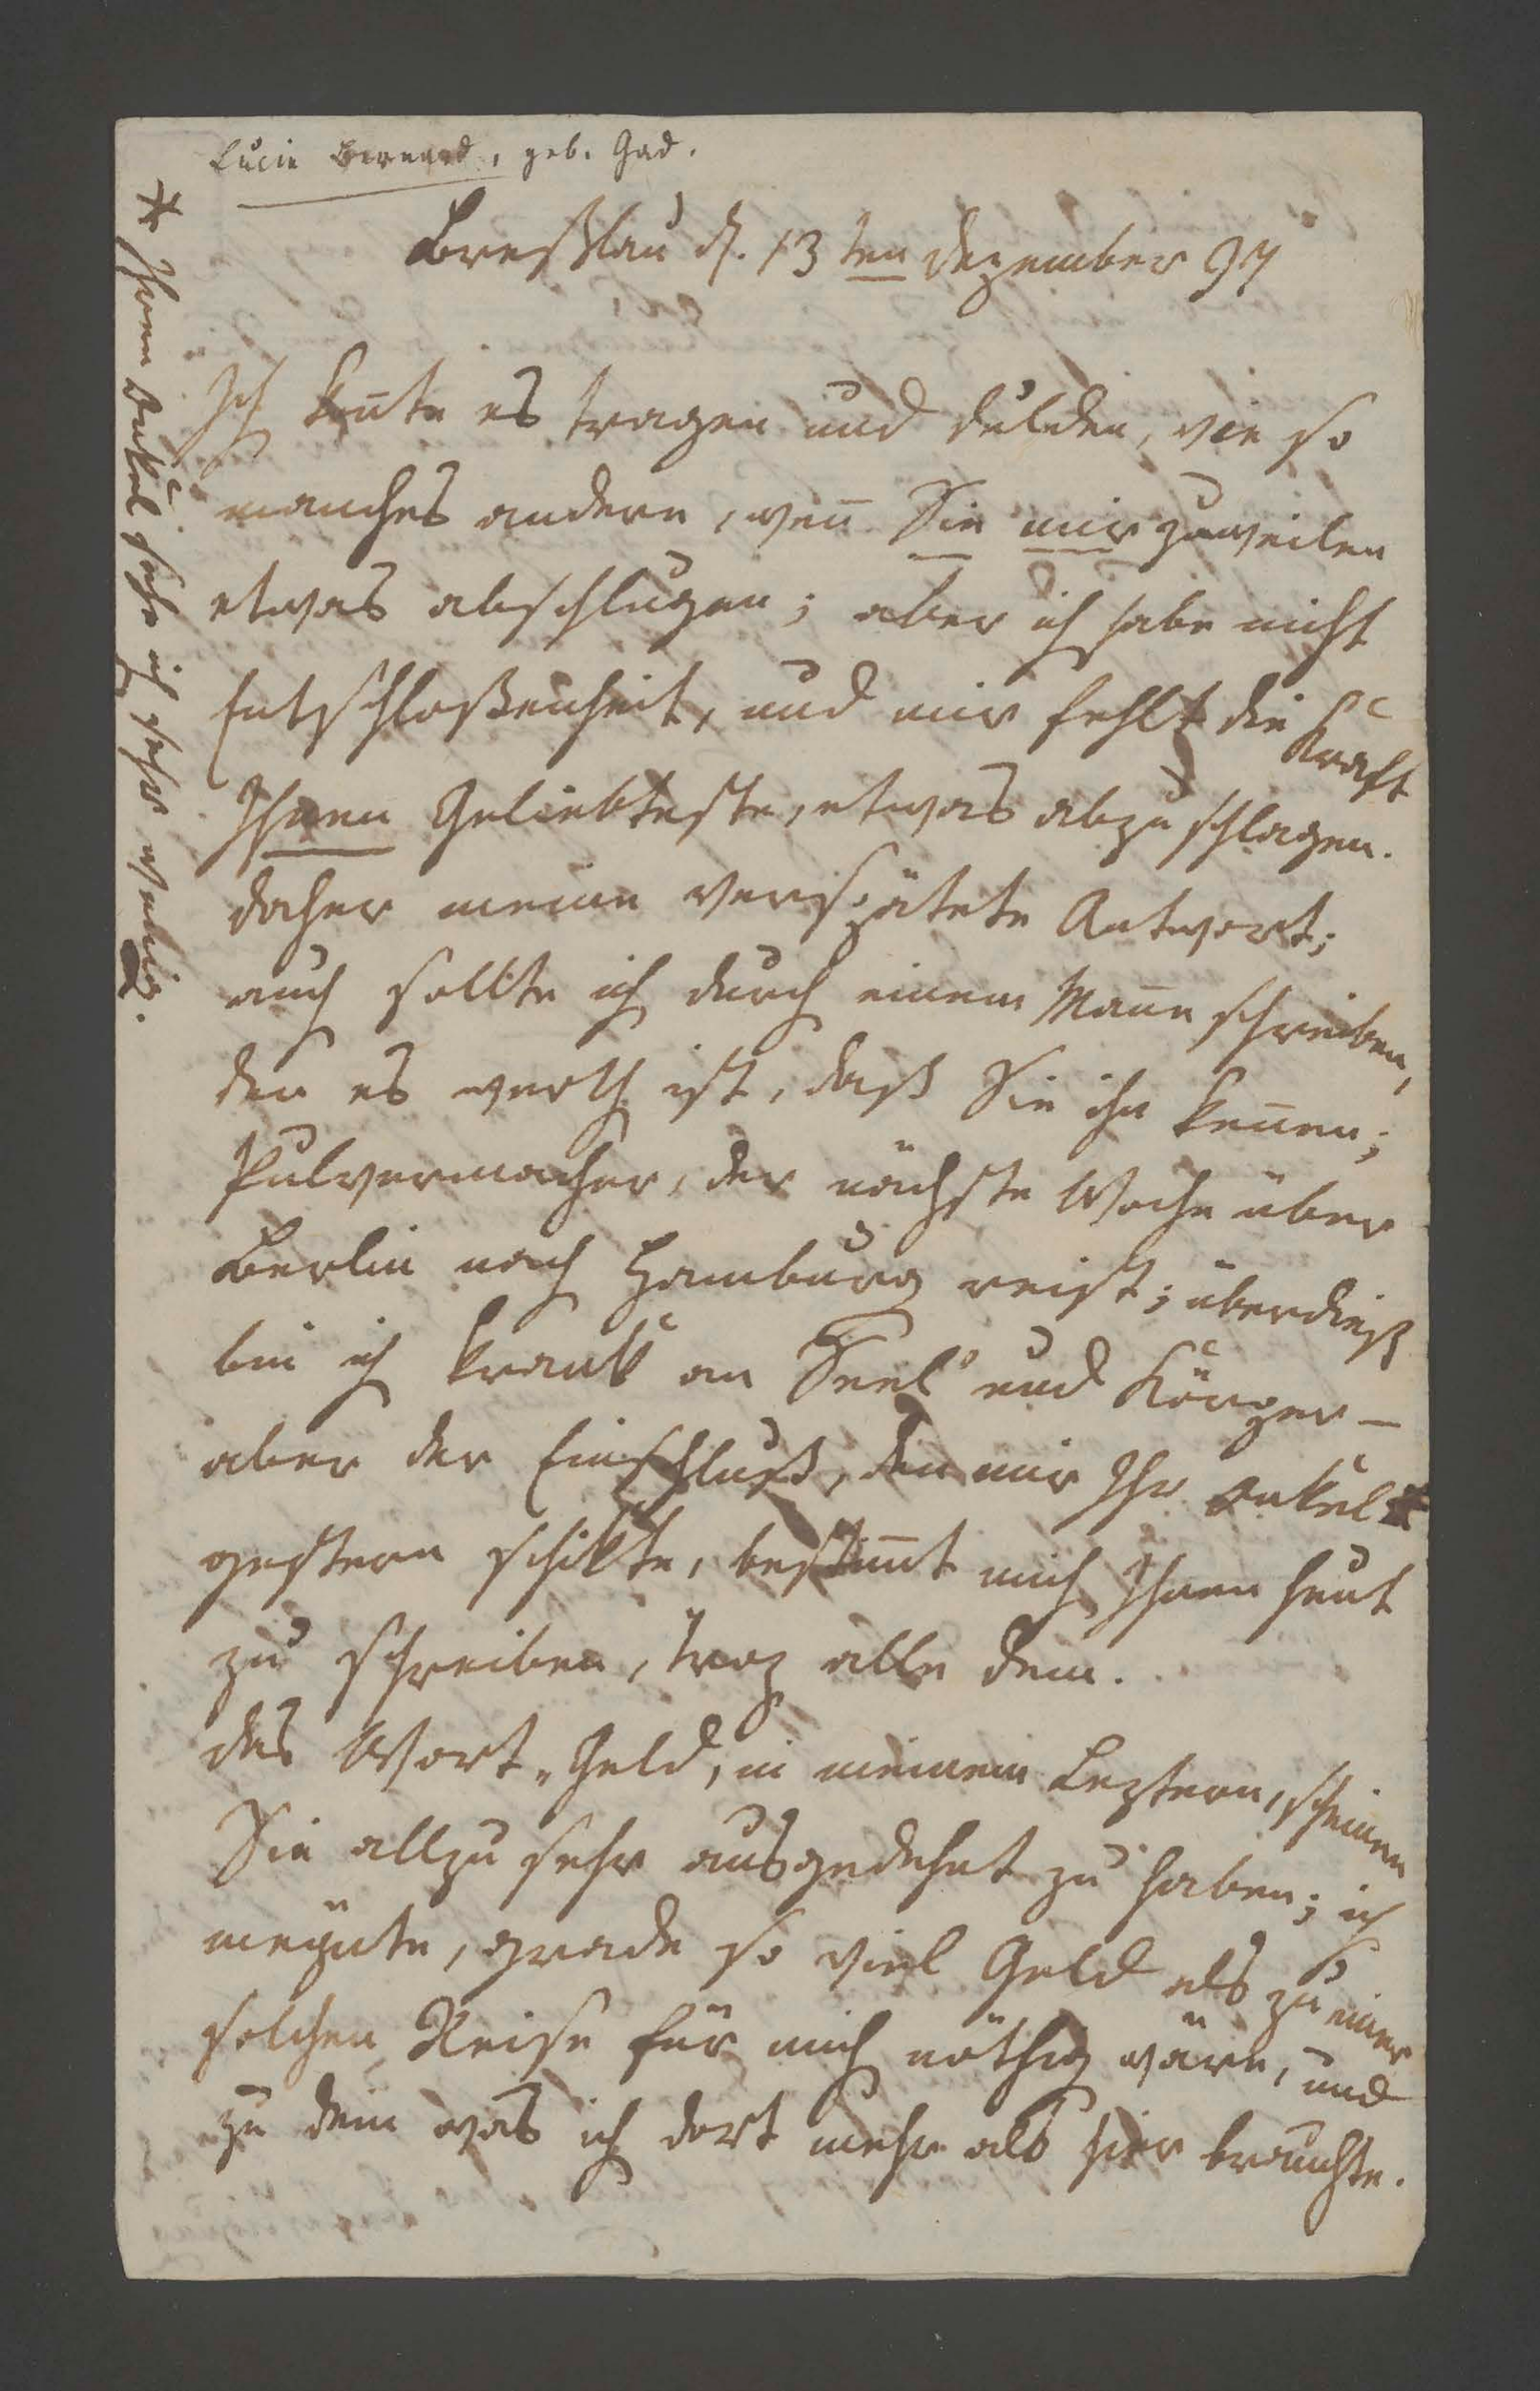 Lucie Bernard, geb. Gad.
Breßlau d. 13ten Dezember 97
Ich kente es tragen und dulden, wie so
manches andere, weñ Sie mir zuweilen
etwas abschlugen; aber ich habe nicht
Entschloßenheit, und mir fehlt die Kraft
Ihnen Geliebteste, etwas abzuschlagen.
daher meine verspätete Antwort;
auch sollte ich durch einem Mañe schreiben,
den es werth ist, daß Sie ihn keñen;
Pulvermacher, der nächste Woche über
Berlin nach Hamburg reist; überdieß
bin ich krank an Seel' und Körper –
aber der Einschluß, den mir Ihr Onkel *
gestern schikte, bestim̃t mich Ihnen heut
zu schreiben, troz alle dem.
das Wort „Geld, in meinem Leztern, scheinen
Sie allzu sehr ausgedehnt zu haben; ich
meÿnte, grade so viel Geld als zu einer
solchen Reise für mich nöthig wäre, und
zu dem was ich dort mehr als hier brauchte.
* Ihren Onkel sehe ich sehr wenig.